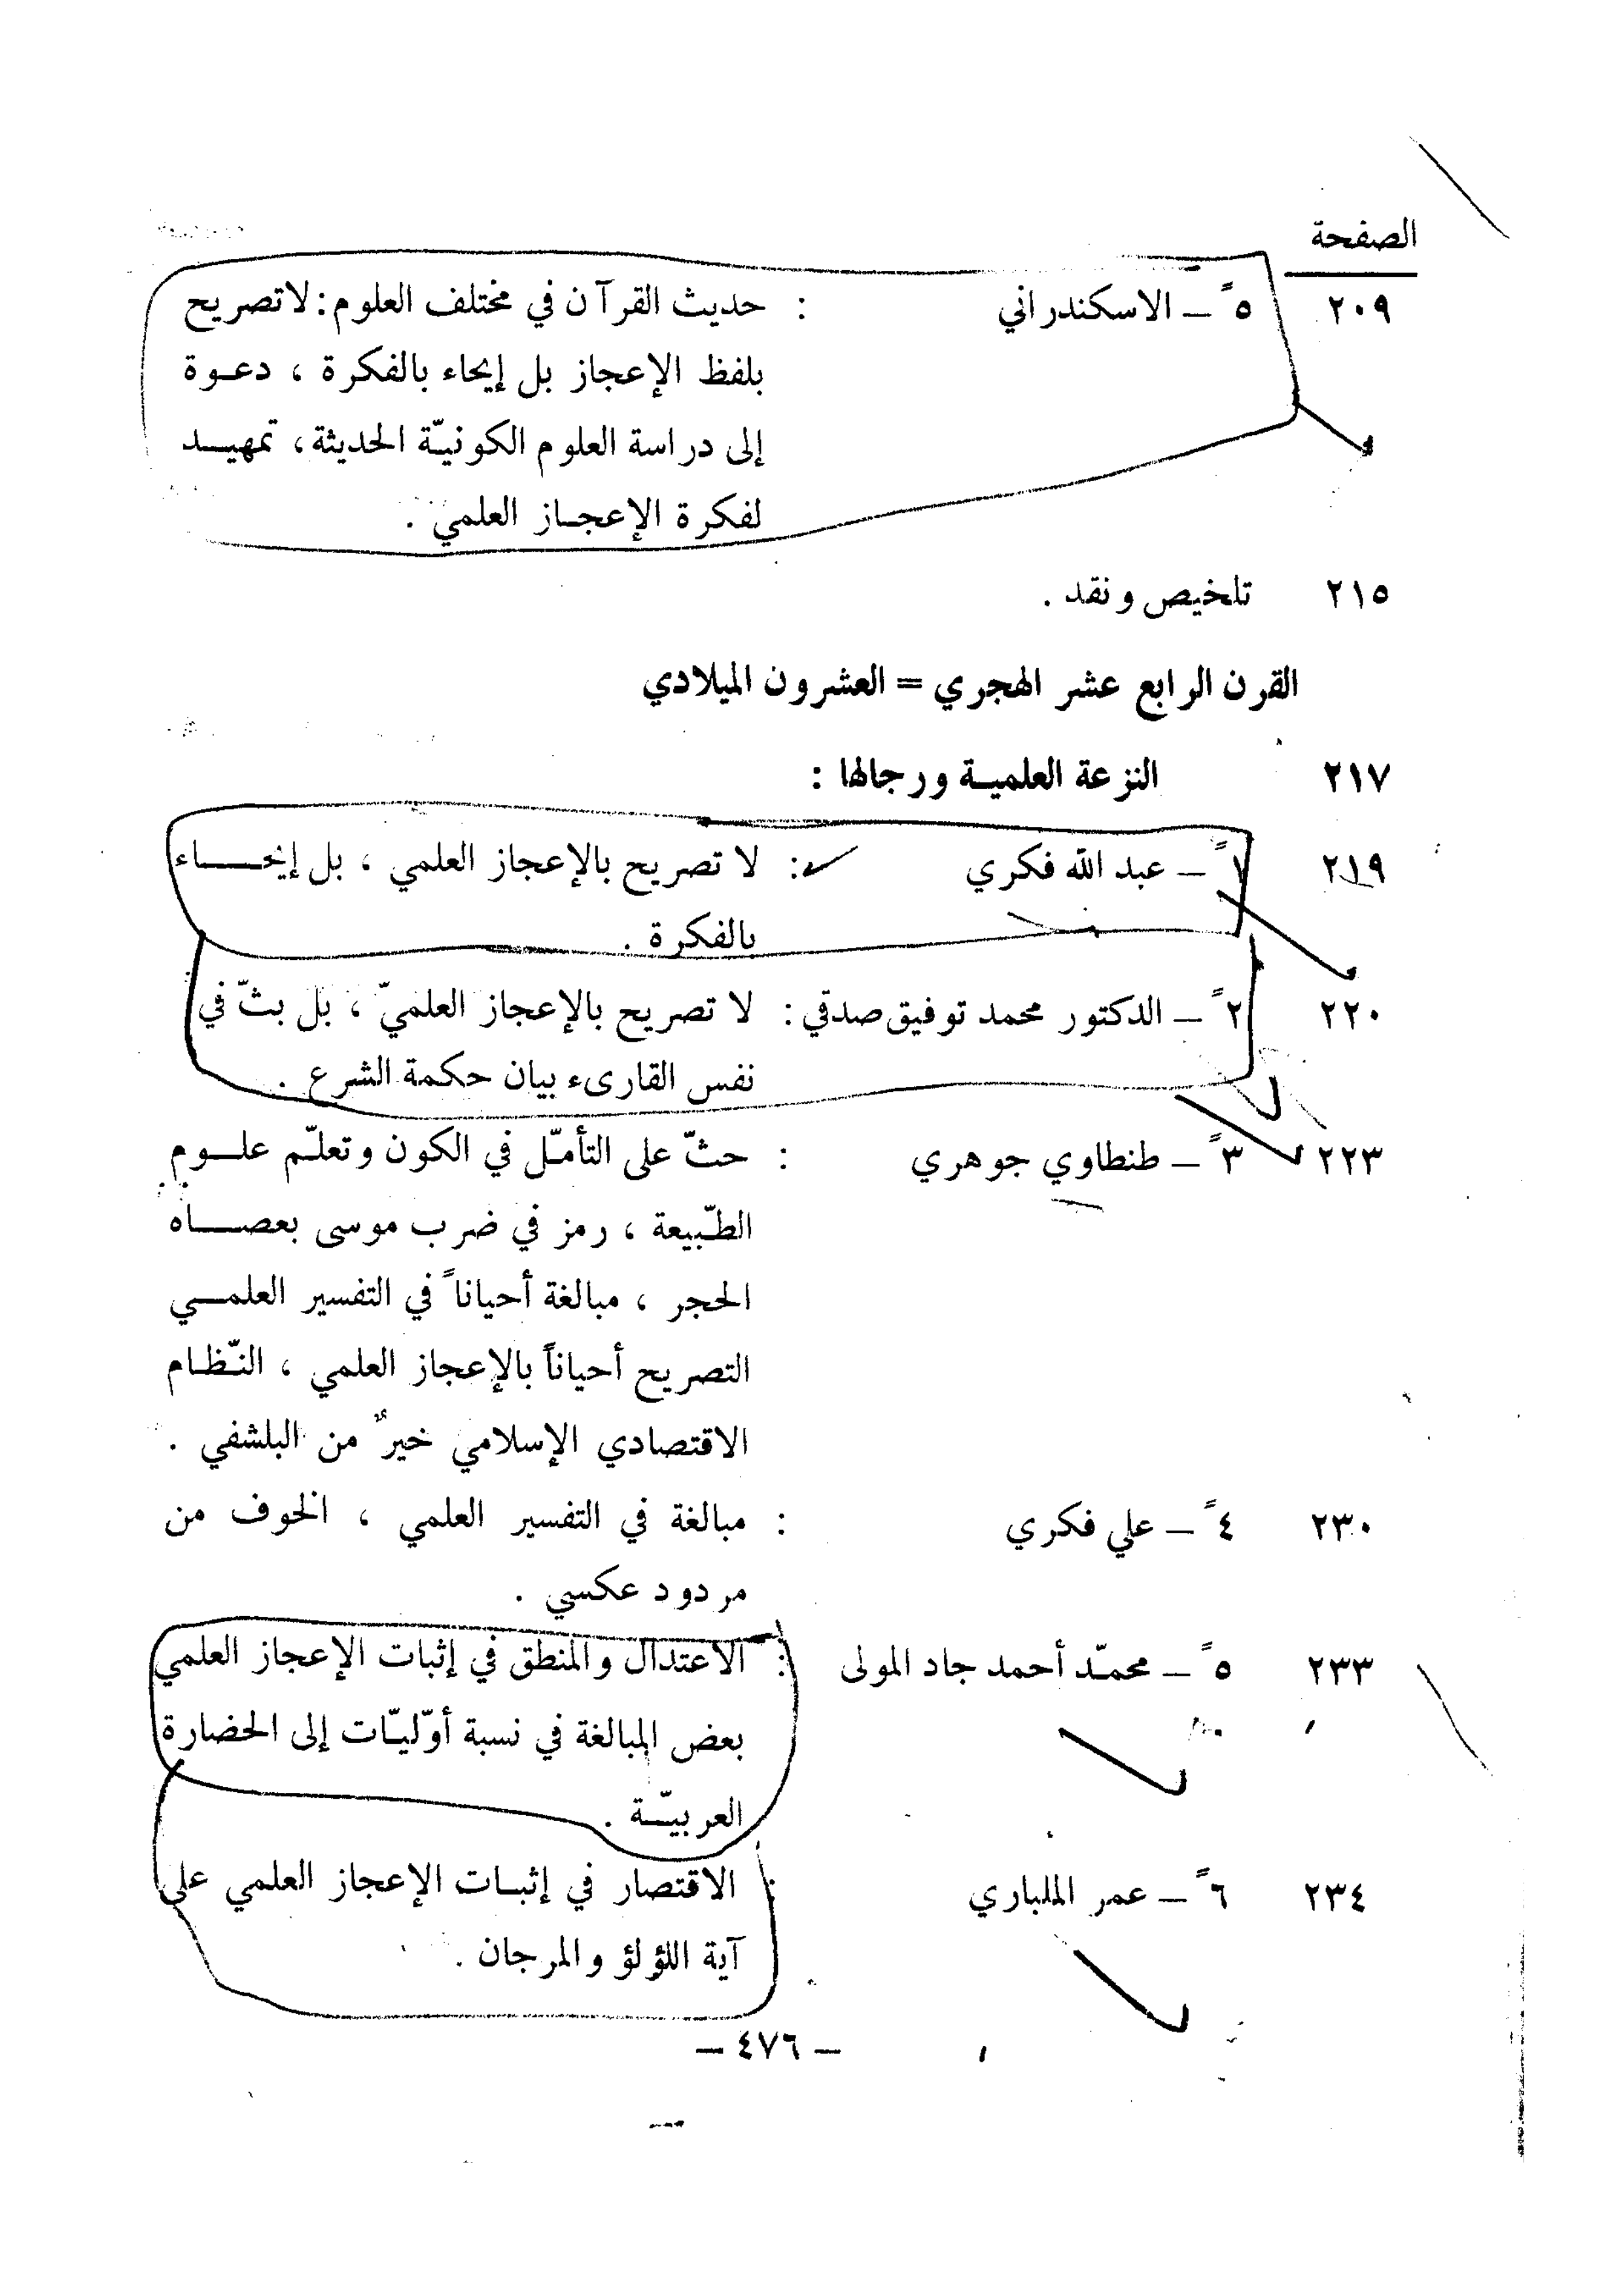 الصفحة
٢٠٩ ٥ً – الاسكندراني : حديث القرآن في مختلف العلوم : لا تصريح
بلفظ الإعجاز بل إيحاء بالفكرة ، دعـوة
إلى دراسة العلوم الكونيّة الحديثة ، تمهيـد
لفكرة الإعجـاز العلمي .
٢١٥ تلخيص ونقد .
القرن الرابع عشر الهجري = العشرون الميلادي
٢١٧ النزعة العلميـة ورجالها :
٢١٩ ١ً – عبد الله فكري : لا تصريح بالإعجاز العلمي ، بل إيحـاء
بالفكرة .
٢٢٠ ٢ً – الدكتور محمد توفيق صدقي : لا تصريح بالإعجاز العلميّ ، بل بثّ في
نفس القارىء بيان حكمة الشرع .
٢٢٣ ٣ً – طنطاوي جوهري : حثّ على التأمّل في الكون وتعلّم علـوم
الطّبيعة ، رمز في ضرب موسى بعصـاه
الحجر ، مبالغة أحياناً في التفسير العلمـي
التصريح أحياناً بالإعجاز العلمي ، النّظـام
الاقتصادي الإسلامي خيرٌ من البلشفي .
٢٣٠ ٤ً – علي فكري : مبالغة في التفسير العلمي ، الخوف من
مردود عكسي .
٢٣٣ ٥ً – محمّد أحمد جاد المولى : الاعتدال والمنطق في إثبات الإعجاز العلمي
بعض المبالغة في نسبة أوّليّات إلى الحضارة
العربيّـة .
٢٣٤ ٦ً – عمر الملباري : الاقتصار في إثبـات الإعجاز العلمي على
آية اللؤلؤ والمرجان .
– ٤٧٦ –